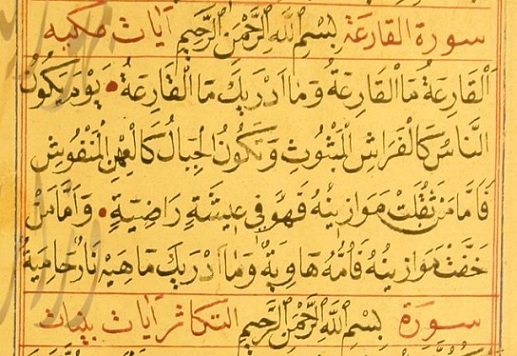 سورة القارعة بِسْمِ اللَّهِ الرَّحْمَٰنِ الرَّحِيمِ آیات مکیه
اَلْقَارِعَةُ مَا الْقَارِعَةُ وَمَا اَدْرٰیكَ مَا الْقَارِعَةُ يَوْمَ يَكُونُ
النَّاسُ كَالْفَرَاشِ الْمَبْثُوثِ وَتَكُونُ الْجِبَالُ كَالْعِهْنِ الْمَنْفُوشِ
فَاَمَّا مَنْ ثَقُلَتْ مَوَازِينُهُ فَهُوَ فِي عِيشَةٍ رَاضِيَةٍ وَاَمَّا مَنْ
خَفَّتْ مَوَازِينُهُ فَاُمُّهُ هَاوِيَةٌ وَمَا اَدْرٰیكَ مَاهِيَهْ نَارٌ حَامِيَةٌ
سورة بِسْمِ اللَّهِ الرَّحْمَٰنِ الرَّحِيمِ التکاثر آیات